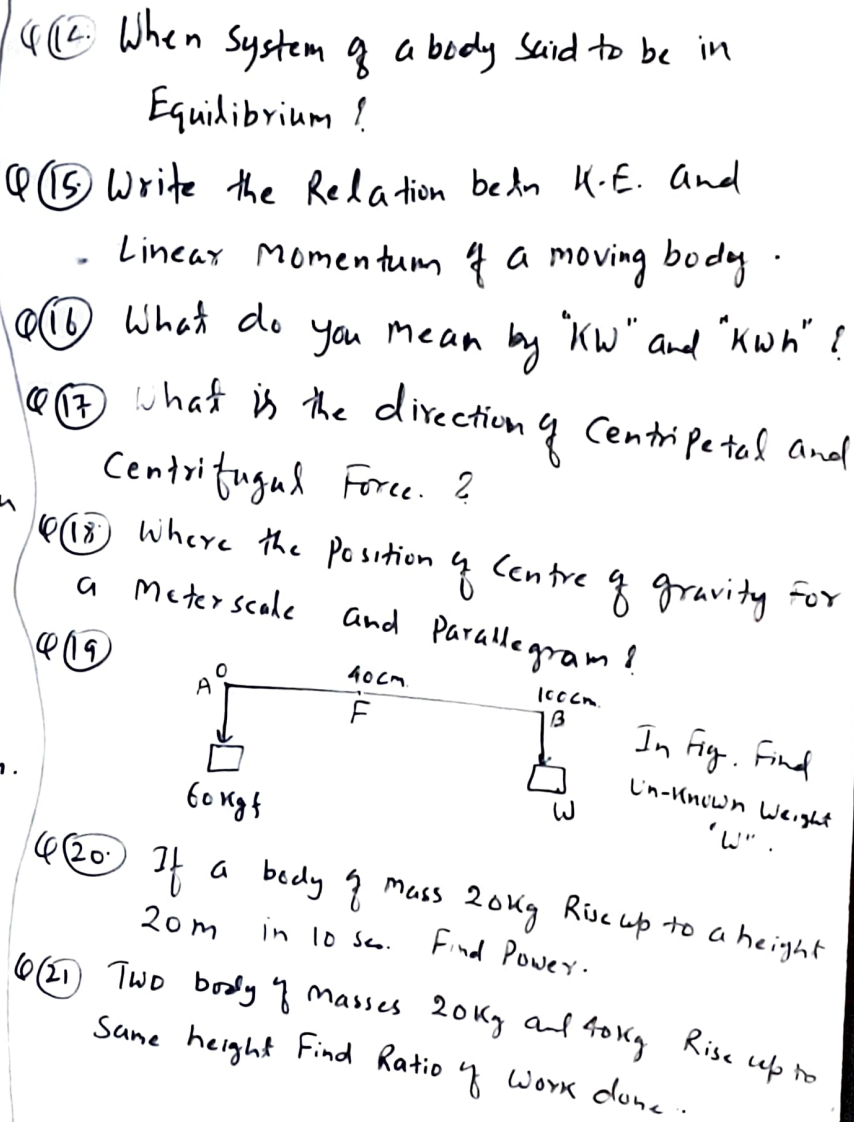 Q 14. When system of a body said to be in
Equilibrium ?
Q 15. Write the Relation betn K.E. and
Linear Momentum of a moving body .
Q 16 What do you mean by "KW" and "Kwh" ?
Q 17 what is the direction of Centripetal and
Centrifugal Force. ?
Q 18. Where the position of Centre of gravity For
a Meterscale and Parallegram ?
Q 19
A O 40cm. 100cm.
F B
In Fig. Find
Un-Known Weight
"W".
60 Kgf W
Q 20. If a body of mass 20Kg Rise up to a height
20m in 10 sec. Find Power.
Q 21 Two body of Masses 20Kg and 40Kg Rise up to
Same height Find Ratio of Work done..